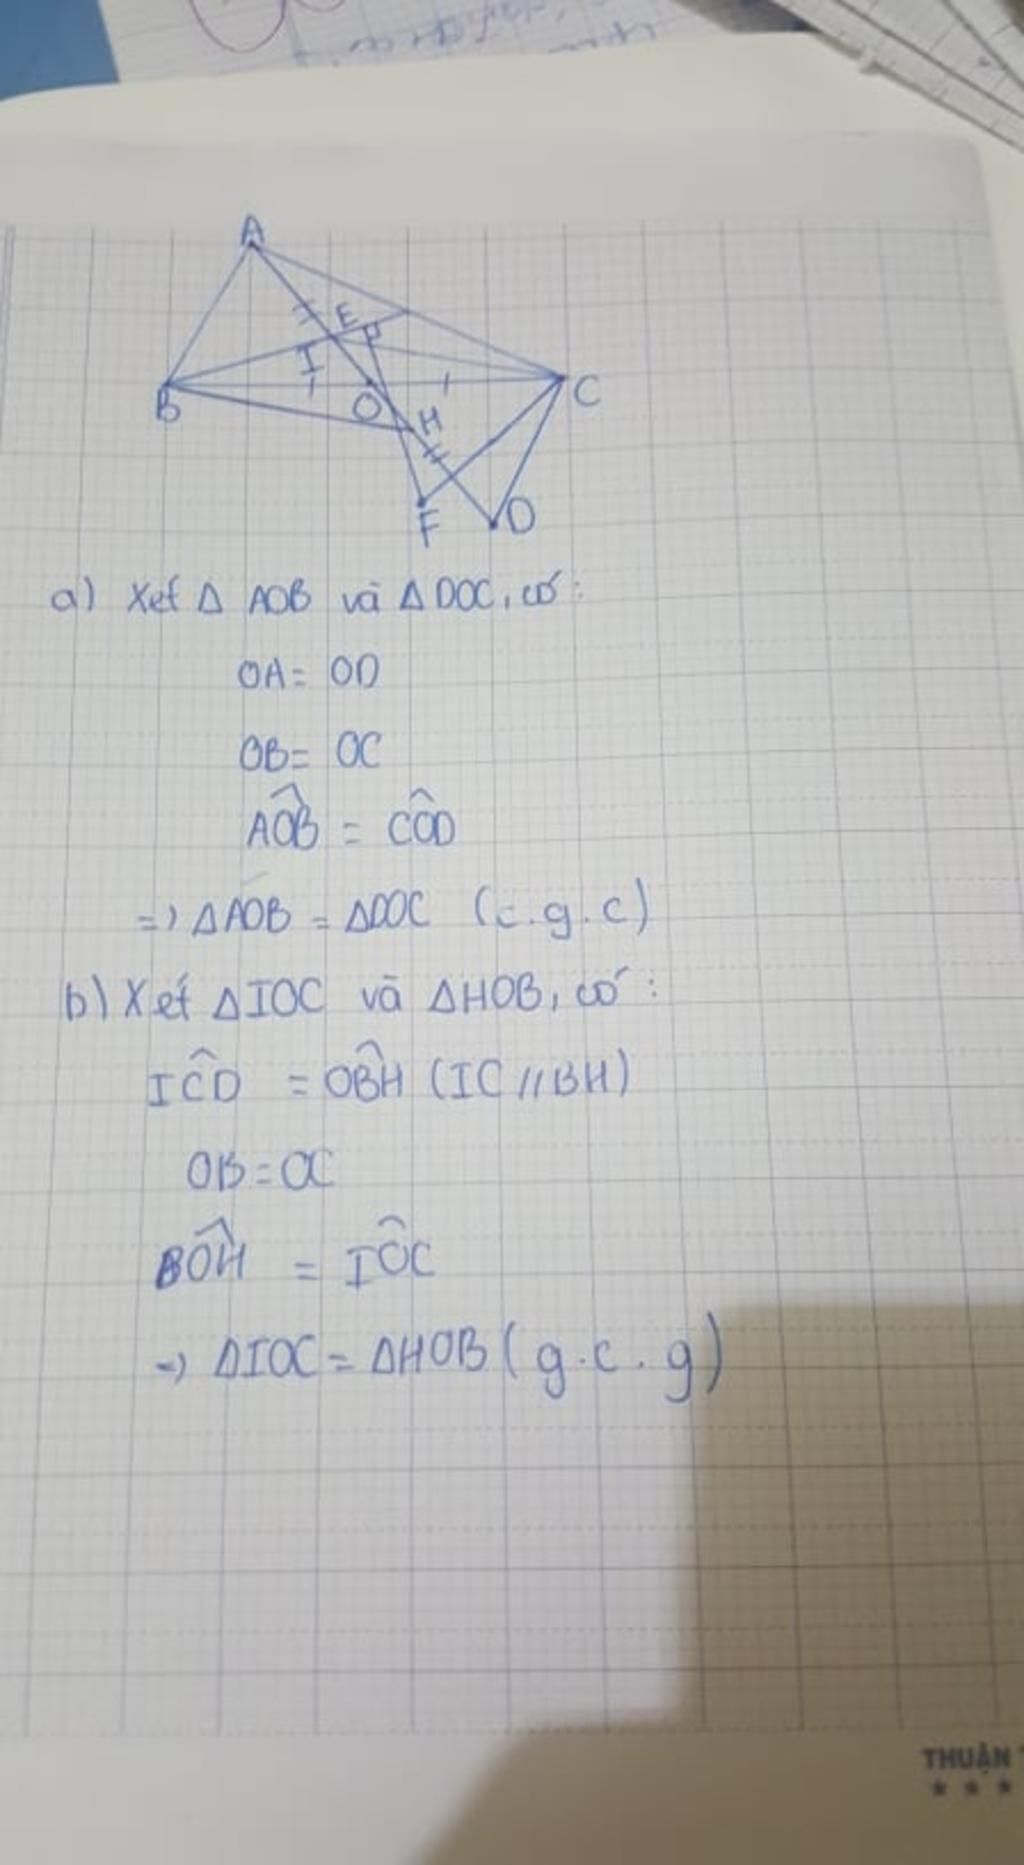 A
E
I
B
O
H
C
F
D
a) Xét Δ AOB và Δ DOC, có:
OA = OD
OB = OC
AÔB = CÔD
=> ΔAOB = ΔDOC (c.g.c)
b) Xét ΔIOC và ΔHOB, có:
IĈD = OB̂H (IC // BH)
OB = OC
BÔH = IÔC
=> ΔIOC = ΔHOB (g.c.g)
THUẬN